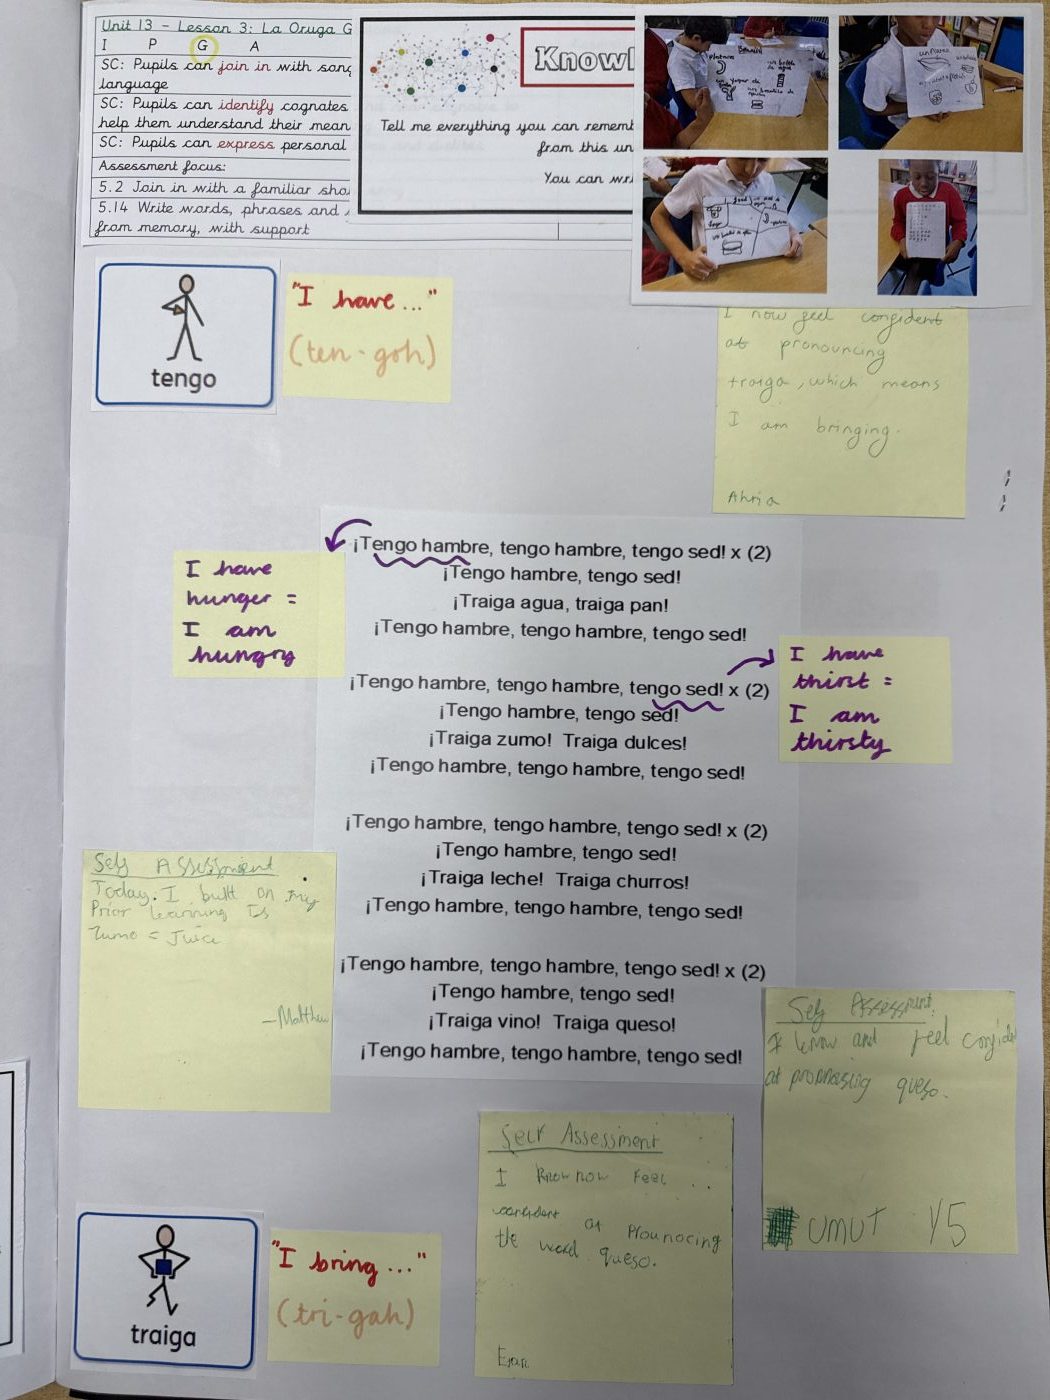 Unit 13 - Lesson 3: La Oruga G
I P G A
SC: Pupils can join in with song
language
SC: Pupils can identify cognates
help them understand their mean
SC: Pupils can express personal
Assessment focus:
5.2 Join in with a familiar sho
5.14 Write words, phrases and
from memory, with support
Knowl
Tell me everything you can rememb
from this un
You can wri
tengo
"I have..."
(ten-goh)
I now feel confident
at pronouncing
traiga, which means
I am bringing.
¡Tengo hambre, tengo hambre, tengo sed! x (2)
¡Tengo hambre, tengo sed!
¡Traiga agua, traiga pan!
¡Tengo hambre, tengo hambre, tengo sed!
I have
hunger =
I am
hungry
¡Tengo hambre, tengo hambre, tengo sed! x (2)
¡Tengo hambre, tengo sed!
¡Traiga zumo! Traiga dulces!
¡Tengo hambre, tengo hambre, tengo sed!
I have
thirst =
I am
thirsty
¡Tengo hambre, tengo hambre, tengo sed! x (2)
¡Tengo hambre, tengo sed!
¡Traiga leche! Traiga churros!
¡Tengo hambre, tengo hambre, tengo sed!
Self Assessment
Today. I built on my
Prior learning Is
Zumo = Juice
-Matthew
¡Tengo hambre, tengo hambre, tengo sed! x (2)
¡Tengo hambre, tengo sed!
¡Traiga vino! Traiga queso!
¡Tengo hambre, tengo hambre, tengo sed!
Self Assessment
I know and feel confident
at queso.
UMUT Y5
Self Assessment
I Know now Feel
confident at Prounocing
the word queso.
traiga
"I bring..."
(tri-gah)